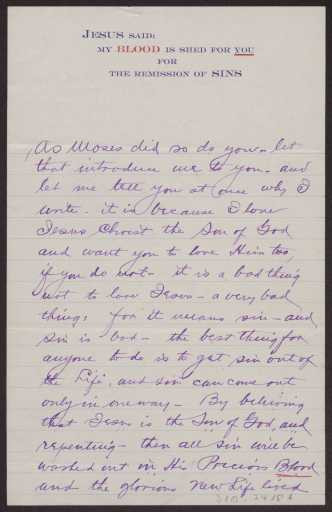 JESUS SAID:
MY BLOOD IS SHED FOR YOU
FOR
THE REMISSION OF SINS
As Moses did so do you - let
that introduce me to you - and
let me tell you at once why I
write - it is because I love
Jesus Christ the Son of God
and want you to love Him too,
if you do not - it is a bad thing
not to love Jesus - a very bad
thing; for it means sin - and
sin is bad - the best thing for
anyone to do is to get sin out of
the Life, and sin can come out
only in one way - By believing
that Jesus is the Son of God, and
repenting - then all sin will be
washed out in His Precious Blood
and the glorious New Life lived